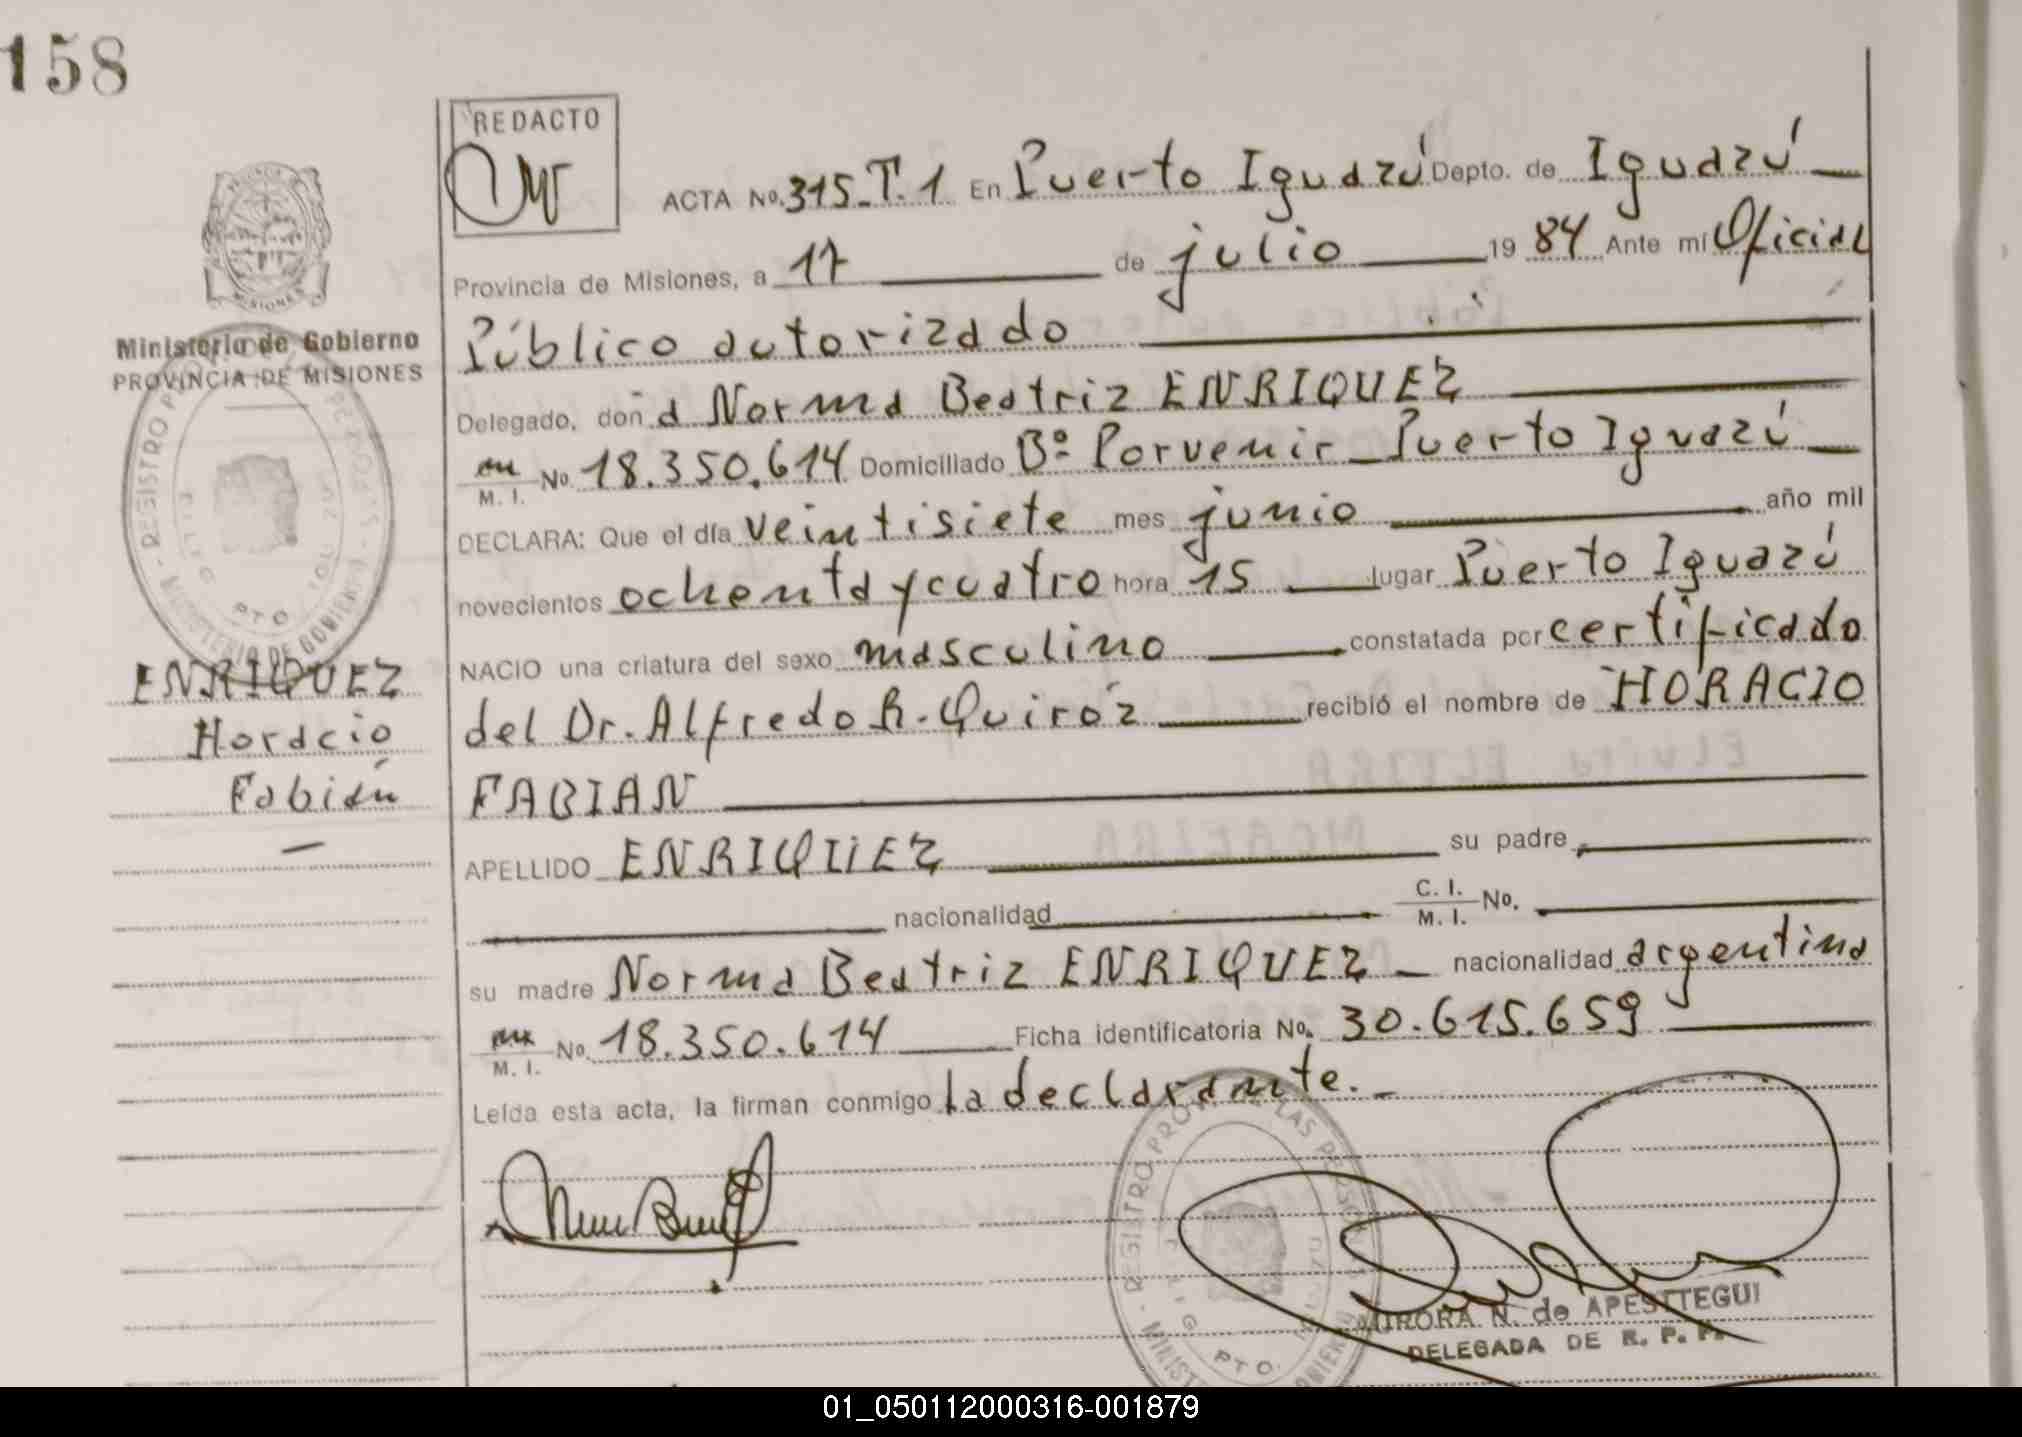 158
REDACTO
ACTA No. 315_T.1 En Puerto Iguazú Depto. de Iguazú
Provincia de Misiones, a 17 de julio 19 84 Ante mí Oficial
Público autorizado
Delegado, don a Norma Beatriz ENRIQUEZ
M. I. No. 18.350.614 Domiciliado Bº Porvenir - Puerto Iguazú
DECLARA: Que el día veintisiete mes junio año mil
novecientos ochenta y cuatro hora 15 lugar Puerto Iguazú
NACIO una criatura del sexo masculino constatada por certificado
del Dr. Alfredo R. Quiróz recibió el nombre de HORACIO
FABIAN
APELLIDO ENRIQUEZ su padre
nacionalidad C. I. M. I. No.
su madre Norma Beatriz ENRIQUEZ nacionalidad argentina
M. I. No. 18.350.614 Ficha identificatoria No. 30.615.659
Leída esta acta, la firman conmigo la declarante.
MISIONES
Ministerio de Gobierno
PROVINCIA DE MISIONES
ENRIQUEZ
Horacio
Fabián
AURORA N. de APESTTEGUI
DELEGADA DE R. P. P.
01_050112000316-001879